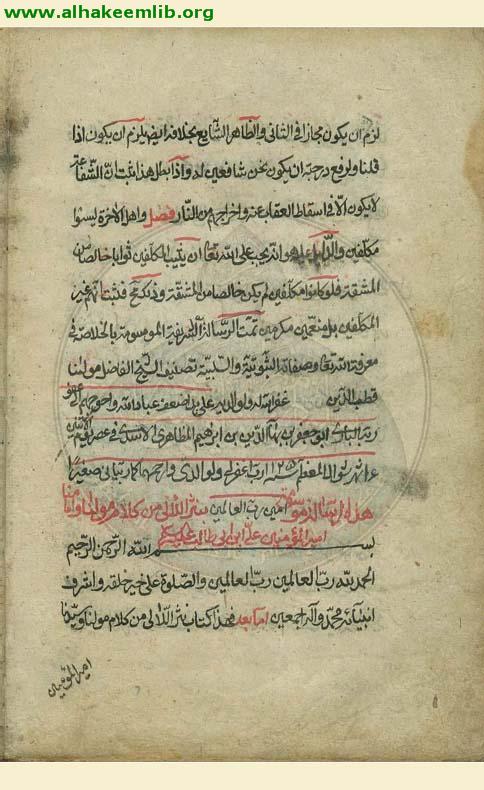 www.alhakeemlib.org
لزم ان يكون مجازا في الثاني والظاهر الشايع بخلافه ايض يلزم ان يكون اذا
قلنا ولرفع درجته ان يكون نحن شافعين له واذا بطل هذا ثبت ان الشفاعة
لا يكون الا في اسقاط العقاب عنه واخراجهم من النار فصل واهل الآخرة ليسوا
مكلفين والدليل عليه هو انه يجب على الله تعا ان يثيب المكلفين ثوابا خالصا من
المشقة فلو كانوا مكلفين لم يكن خالصا من المشقة وذلك مح فثبت انهم غير
المكلفين بل منعمين مكرمين تمت الرسالة الشريفة الموسومة بالخلاصة في
معرفة الله تعا وصفاته الثبوتية والسلبية تصنيف الشيخ الفاضل مولنا
قطب الدين غفر الله له ولوالديه على يد اضعف عباد الله واحوجهم الى عفو
ربه الباري ابو جعفر بن بهاء الدين بن ابراهيم المظاهري الاسدي في عصر يوم الاثنين
المعظم سنة رب اغفر لي ولوالدي وارحمهما كما ربياني صغيرا
هذه الرسالة موسومة امين رب العالمين بنثر اللآلي من كلام مولنا وامامنا
امير المؤمنين علي ابن ابي طالب عليكم
بسم الله الرحمن الرحيم
الحمد لله رب العالمين رب العالمين والصلوة على خير خلقه واشرف
انبيائه محمد وآله اجمعين اما بعد فهذا كتاب نثر اللآلي من كلام مولنا وسيدنا
امير المؤمنين